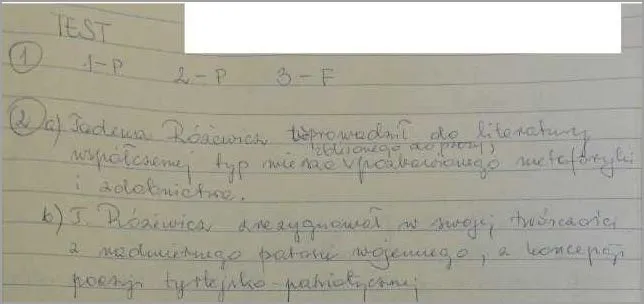 TEST
1 1-P 2-P 3-F
2 a) Tadeusz Różewicz wprowadził do literatury
współczesnej typ wiersza zbliżonego do prozy, pozbawionego metaforyki
i zdobnictwa.
b) T. Różewicz zrezygnował w swojej twórczości
z nadmiernego patosu wojennego, z koncepcji
poezji tyrtejsko-patriotycznej